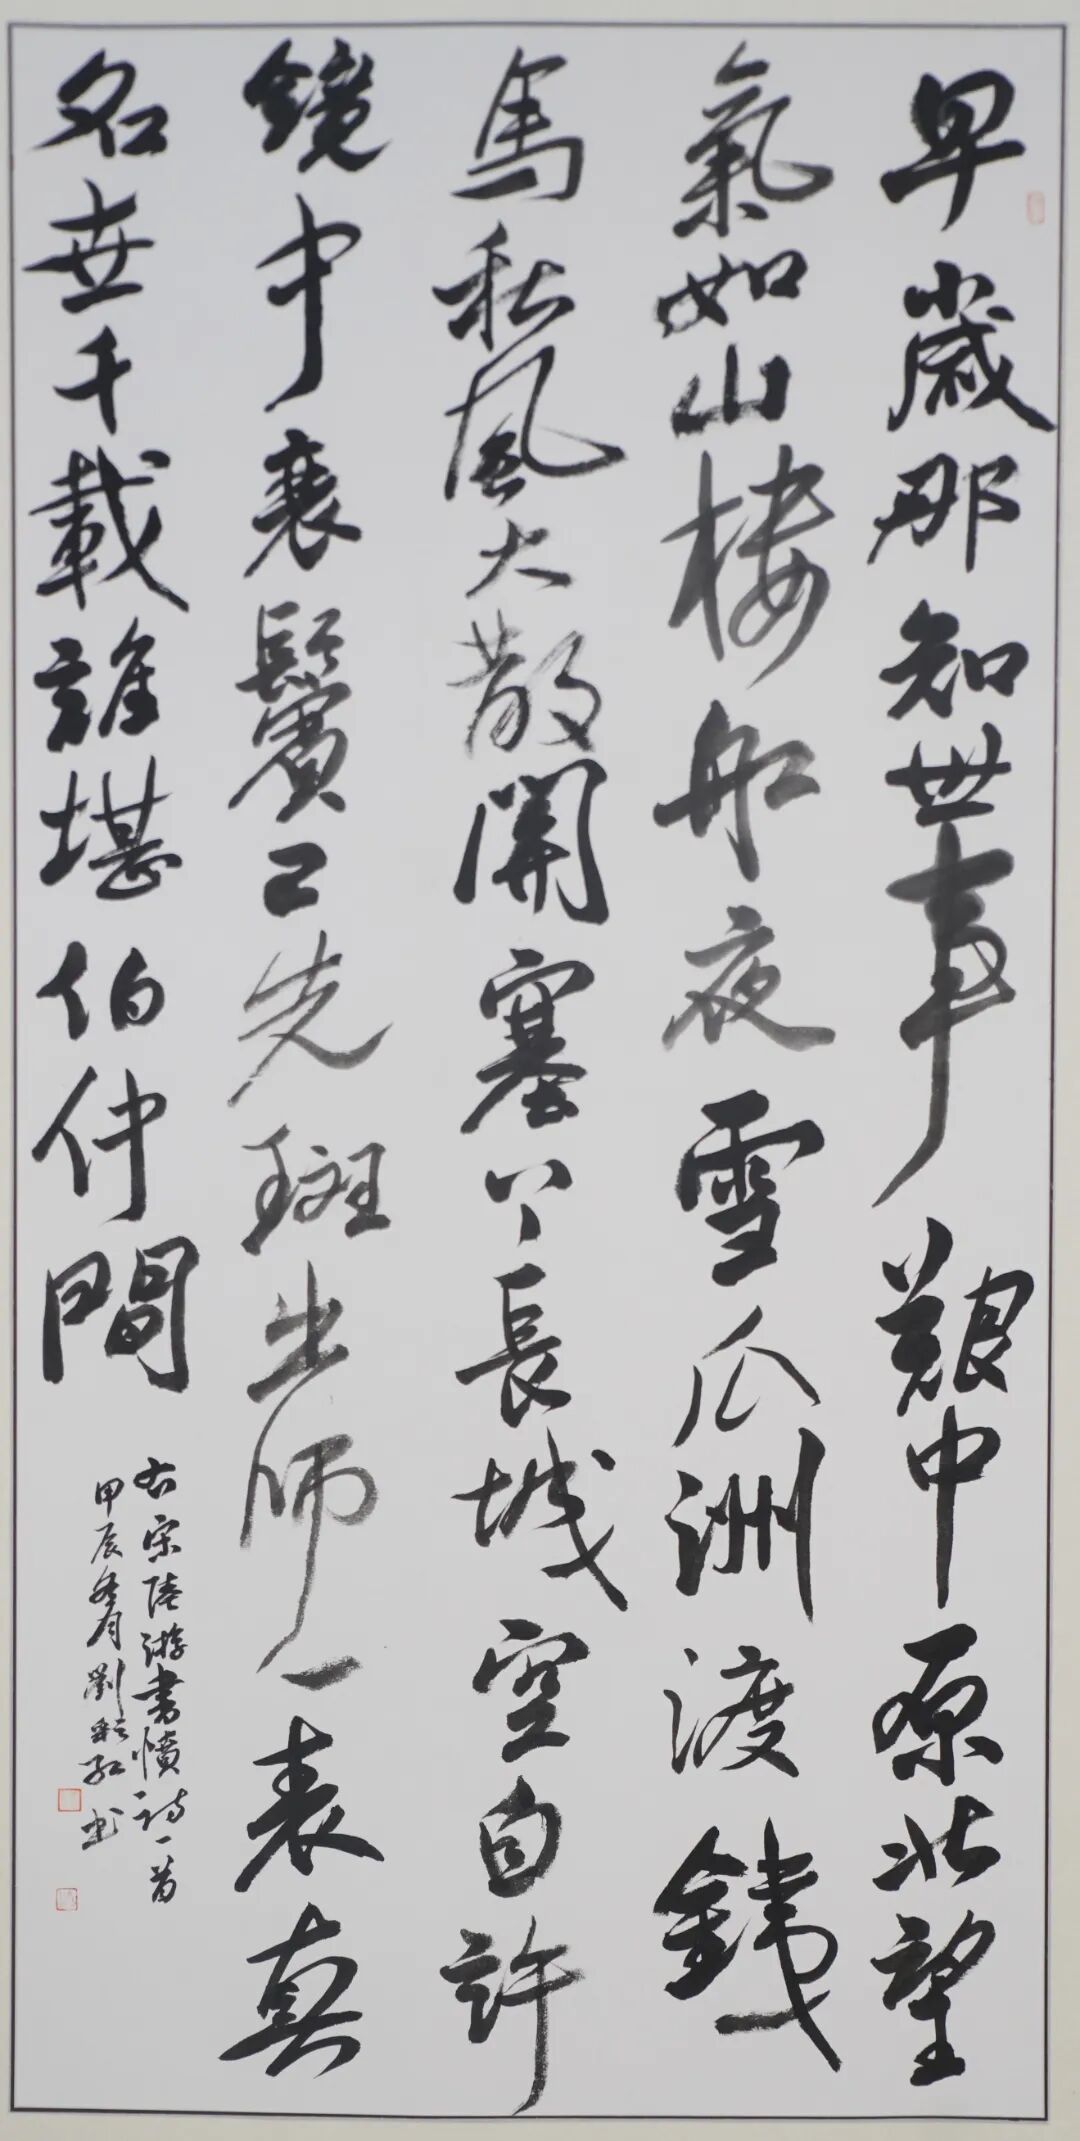 早歲那知世事艱中原北望
氣如山樓船夜雪瓜洲渡鐵
馬秋風大散關塞上長城空自許
鏡中衰鬢已先斑出師一表真
名世千載誰堪伯仲間
右宋陸游書憤詩一首
甲辰冬月劉彩紅書